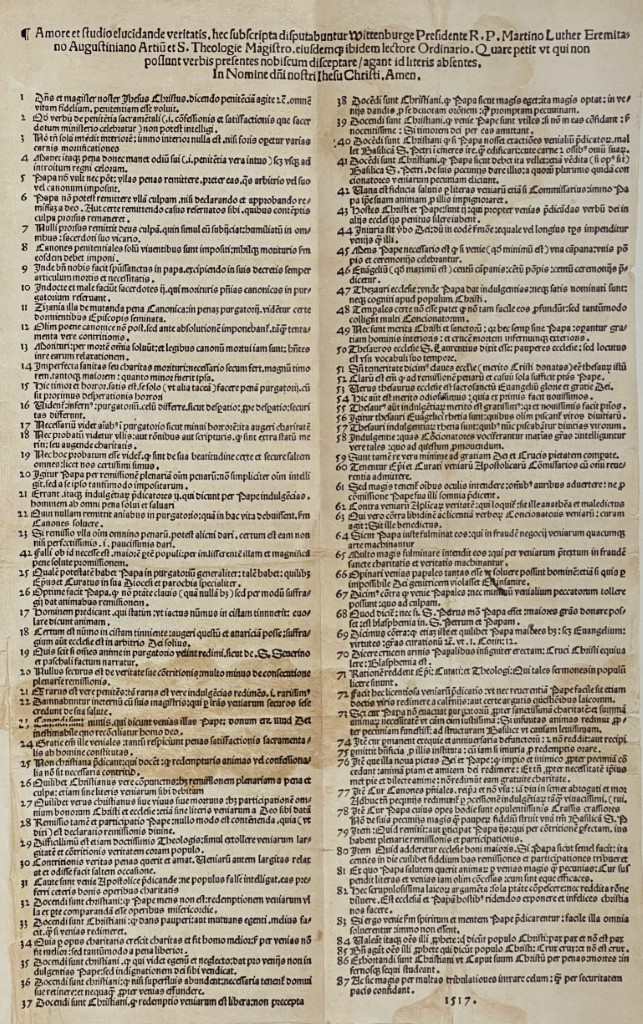 ¶ Amore et studio elucidande veritatis, hec subscripta disputabuntur Wittenburge Presidente R. P. Martino Luther Eremita-
no Augustiniano Artiū et S. Theologie Magistro, eiusdemq; ibidem lectore Ordinario. Quare petit vt qui non
possunt verbis presentes nobiscum disceptare / agant id literis absentes.
In Nomine dñi nostri Ihesu Christi, Amen.
1 Dñs et magister noster Ihesus Christus, dicendo penitēciā agite ꝛc. omnē
vitam fidelium, penitentiam esse voluit.
2 Qd̄ verbū de penitētia sacramētali (.i. cōfessionis et satisfactionis que sacer
dotum ministerio celebratur) non potest intelligi.
3 Nō tn̄ solā intēdit interiorē: immo interior nulla est, nisi foris operetur varias
carnis mortificationes
4 Manet itaq; pena donec manet odiū sui (.i. penitētia vera intus) scꝫ vsq; ad
introitum regni celorum.
5 Papa nō vult nec pōt: vllas penas remittere, preter eas, q̄s arbitrio vel suo
vel canonum imposuit.
6 Papa nō potest remittere vllā culpam, nisi declarando et approbando re-
missā a deo. Aut certe remittendo casus reservatos sibi, quibus conteptis
culpa prorsus remaneret.
7 Nulli prorsus remittit deus culpā, quin simul eū subijciat: humiliatū in om-
nibus: sacerdoti suo vicario.
8 Canones penitentiales solū viuentibus sunt impositi: nihilq; morituris fm̄
eosdem debet imponi.
9 Inde bn̄ nobis facit spūssanctus in papa, excipiendo in suis decretis semper
articulum mortis et necessitatis.
10 Indocte et male faciūt sacerdotes ij, qui morituris pn̄ias canonicas in pur-
gatorium reseruant.
11 Zizania illa de mutanda pena Canonica: in penaꝫ purgatorij, vidētur certe
dormientibus Episcopis seminata.
12 Olim poene canonice nō post, sed ante absolutionē imponebanf, tāq̄ tenta-
menta vere contritionis.
13 Morituri: per mortē omīa soluūt: et legibus canonū mortui iam sunt: hn̄tes
iure earum relaxationem.
14 Imperfecta sanitas seu charitas morituri: necessario secum fert, magnū timo
rem, tantoq; maiorem: quanto minor fuerit ipsa.
15 Hic timor et horror, satis est, se solo (vt alia tacea) facere penā purgatorij, cū
sit proximus desperationis horrori
16 videnf: infern⁹: purgatoriū, celū differre, sicut desperatio, ꝓpe desperatio: securi-
tas differunt.
17 Necessariū videf aīab⁹ in purgatorio sicut minui horrorē: ita augeri charitatē
18 Nec probatū videtur vllis: aut rōnibus aut scripturis, q sint extra statū me
riti: seu augende charitatis.
19 Nec hoc probatum esse videf, q sint de sua beatitudine certe et secure saltem
omnes: licet nos certissimi simus.
20 Igitur Papa per remissionē plenariā oīm penarū: nō simpliciter oīm intelli
git, sed a se ipso tantūmodo impositarum.
21 Errant, itaq; indulgētiaꝝ p̄dicatores ij, qui dicunt per Pape indulgēcias,
hominem ab omni pena solui et saluari
22 Quin nullam remittit aniabus in purgatorio: quā in hac vita debuissent, fm̄
Canones soluere.
23 Si remissio vlla oīm omnino penarū, potest alicui dari, certum est eam non
nisi perfectissimis .i. paucissimis dari.
42 Falli ob id necesse est, maiorē ptē populi: per indifferentē illam et magnificā
pene solute promissionem.
25 Qualē potestatē habet Papa in purgatoriū generaliter: talē habet: quilibꝫ
Epūs et Curatus in sua Diocesi et parochia specialiter.
26 Optime facit Papa, q nō ptāte clauis (quā nullā hꝫ) sed per modū suffra-
gij dat animabus remissionem.
17 Hominem predicant, qui statim: vt iactus numus in cistam tinnuerit: euo-
lare dicunt animam.
18 Certum est numo in cistam tinniente: augeri questū et auariciā posse: suffra-
gium aūt ecclesie est in arbitrio Dei solius.
19 Quis scit si omnes anime in purgatorio velint redimi, sicut de. S. Severino
et paschali factum narratur.
20 Nullus securus est de veritate sue cōtritionis: multo minus de consecutione
plenarie remissionis.
21 Qᷓ rarus est vere penitēs: tā rarus est vere indulgēcias redimēs .i. rarissim⁹
22 Damnabuntur ineternū cū suis magistris: qui p̄ lr̄as veniarum securos sese
credunt de sua salute.
23 nimis, qui dicunt venias illas Pape: donum esse illud Dei
inestimabile quo reconciliatur homo deo.
24 Gratie enī ille veniales: tantū respiciunt penas satisfactionis sacramenta-
lis ab homine constitutas.
25 Non christiana p̄dicant: qui docēt: q redempturis animas vel confessiona-
lia nō sit necessaria contritio.
26 Quilibet Christianus vere cōpunctus: hꝫ remissionem plenariam a pena et
culpa: etiam sine literis veniarum sibi debitam
27 Quilibet verus christianus siue viuus siue mortuus: hꝫ participationē om-
nium bonorum Christi et ecclesie: etiā sine literis veniarum a Deo sibi datā
28 Remissio tamē et participatio Pape: nullo modo est contēnenda, quia (vt
dixi) est declaratio remissionis divine.
29 Difficillimū est etiam doctissimis Theologis: simul extollere veniarum lar-
gitatē et cōtritionis veritatem coram populo.
30 Contritionis veritas penas querit et amat. Veniarū autem largitas relax-
at et odisse facit saltem occasione.
31 Caute sunt venie Apostolice p̄dicande: ne populus falso intelligat, eas pre-
ferri ceteris bonis operibus charitatis
32 Docendi sunt christiani: q Pape mens non est: redemptionem veniarum vl
la ex pte comparandā esse operibus misericordie.
33 Docendi sunt Christiani, q dans pauperi: aut mutuans egenti, melius fa-
cit, q̄ si venias redimeret.
34 Quia p opus charitatis crescit charitas et fit homo melior: sꝫ per venias nō
fit melior: sed tantūmodo a pena liberior.
35 Docendi sunt christiani. q qui videt egenū et neglecto: dat pro venijs non in
dulgentias Pape: sed indignationem dei sibi vendicat.
36 Docendi sunt christiani: q nisi superfluis abundent: necessaria tenent̄ domui
sue retinere: et nequaq̄ ꝓpter venias effundere.
37 Docendi sunt Christiani, q redemptio veniarum est libera: non precepta
38 Docēdi sunt Christiani. q Papa sicut magis eget: ita magis optat: in ve-
nijs dandis, pro se deuotam orationē: q̄ promptam pecuniam.
39 Docendi sunt Christiani. q venie Pape sunt vtiles: si nō in eas cōfidant: sꝫ
nocentissime: Si timorem dei per eas amittant.
40 Docēdi sunt Christiani. q si Papa nosset exactiōes venialiū p̄dicatoꝝ, mal
let Basilicā S. Petri in cineres ire, q̄ edificari: cute carne ⁊ ossib⁹ ouiū suaꝝ
41 Docēdi sunt Christiani: q Papa sicut debet ita vellet: etiā vēdita (si op⁹ sit)
Basilica S. Petri, de suis pecunijs dare illis: a quorū plurimis quidā con-
cionatores veniarum pecuniam eliciunt.
42 Uana est fiducia salutis p literas veniarū etiā si Commissarius: immo Pa-
pa ip̄e suam animam p illis impignoraret.
43 Hostes Christi et Pape: sunt ij: qui propter venias p̄dicādas verbū dei in
alijs ecclesijs penitus silere iubent.
44 Iniuria fit vbo Dei: dū in eodē sermōe: equale vel longius tp̄s impenditur
venijs q̄ illi.
45 Mens Pape necessario est q si venie (qd̄ minimū est) vna cāpana: vnis pō
pis et ceremonijs celebrantur.
46 Euāgeliū (qd̄ maximū est) centū cāpanis: cētū pōpis: centū ceremonijs p̄-
dicetur.
47 Thesauri ecclesie: vnde Papa dat indulgentias: neq; satis nominati sunt:
neq; cogniti apud populum Christi.
48 Temporales certe nō esse patet: q nō tam facile eos ꝓfundūt: sed tantūmodo
colligūt multi Concionatorum.
49 Nec sunt merita Christi et sanctoꝝ: q hec semꝑ sine Papa: operantur gra-
tiam hominis interioris: et crucē mortem infernumq; exterioris.
50 Thesauros ecclesie S. Laurentius dixit esse: pauperes ecclesie: sed locutus
est vsu vocabuli suo tempore.
51 Sine temeritate dicim⁹ claues ecclesie (merito Cristi donatas) eē thesaurū istū
52 Clarū est enī q ad remissionē penaꝝ et casuū sola sufficit ptas Pape.
53 Uerus thesaurus ecclesie est sacrosanctū Euangeliū glorie et gratie Dei.
54 Hic aūt est merito odiosissimus: quia ex primis facit nouissimos.
55 Thesaur⁹ aūt indulgētiaꝝ: merito est gratissim⁹: q ex nouissimis facit pr̄os.
56 Igitur thesauri Euangelici rhetia sunt: quibus olim piscabant̄ viros diuitiarū.
57 Thesauri indulgentiaꝝ rhetia sunt: quib⁹ nūc piscabātur diuitias virorum.
58 Indulgentie: quas Cōcionatores vociferantur maximas gr̄as: intelliguntur
vere tales: quo ad questum ꝓmouendum.
59 Sunt tamē re vera minime ad gratiam Dei et Crucis pietatem compate.
60 Tenentur Epī et Curati veniarū Apostolicaꝝ Commissarios cū omi reue-
rentia admittere.
61 Sed magis tenent̄ oībus oculis intendere: oīb⁹ auribus aduertere: ne p
cōmissione Pape sua illi somnia p̄dicent.
62 Contra veniarū Aplicaꝝ veritatē: qui loquit̄: sit ille anathēa et maledictus
63 Qui vero cōtra libidinē ac licentiā verboꝝ: Concionatoris veniarū: curam
agit: Sit ille benedictus.
64 Sicut Papa iuste fulminat eos: qui in fraudē negocij veniarum quacumq;
arte machinantur.
65 Multo magis fulminare intendit eos: qui per veniarum p̄textum in fraudē
sancte charitatis et veritatis machinantur
66 Opinari venias papales tantas esse: vt soluere possint hominē: etiā si quis p
impossibile Dei genitricem violasset: Est insanire.
67 Dicim⁹ cōtra q venie Papales: nec minimū venialium peccatorum tollere
possint: quo ad culpam.
68 Quod dicit̄: nec si. S. Petrus mō Papa esset: maiores gr̄as donare poss-
set: est blasphemia in. S. Petrum et Papam.
69 Dicimus cōtra: q etiā iste et quilibet Papa maiores hꝫ: scꝫ Euangelium:
virtutes: gr̄as curationū ꝛc. vt. 1. Coriñ. 12.
70 Dicere crucem armis Papalibus insigniter erectam: Cruci Christi equiua
lere: Blasphemia est.
71 Rationē reddent Epī: Curati: et Theologi: Qui tales sermones in populū
licere sinunt.
72 Facit hec licentiosa veniarū p̄dicatio: vt nec reuerentiā Pape facile sit etiam
doctis viris redimere a calūnijs: aut certe argutis questiōibus laicorum.
73 Scꝫ cur Papa nō euacuat purgatoriū: ꝓpter sanctissimā charitatē: et summā
animaꝝ necessitatē vt cām oīm iustissimā: Si infinitas animas redimit ꝓp-
ter pecuniam funestissimā: ad structuram Basilice vt causam leuissimam.
74 Itē Cur ꝑmanent exequie et anniuersaria defunctorum: ⁊ nō reddit: aut recipi
ꝑmittit bn̄ficia p illis instituta: cū iam sit iniuria ꝓ redemptis orare.
75 Itē que illa noua pietas Dei et Pape: q impio et inimico ꝓpter pecuniā cō
cedunt: animā piam et amicam dei redimere: Et tn̄ ꝓpter necessitatē ip̄ius
met pie et dilecte anime: nō redimūt eam gratuita charitate.
77 Itē Cur Canones pn̄iales, re ipsa et nō vsu: iā diu in semet abrogati et mor-
tui: adhuc tn̄ pecunijs redimunt̄ ꝑ ꝯcessionē indulgentiaꝝ: tāq̄ viuacissimi,
78 Itē Cur Papa cuius opes hodie sunt opulentissimis Crassis crassiores
Nō de suis pecunijs magis q̄ pauperū fidelium struit vnā tm̄ Basilicā S. P.
79 Item: Quid remittit: aut participat Papa ijs: qui per cōtritionē perfectam, ius
habent plenarie remissionis et participationis.
80 Item Quid adderetur ecclesie boni maioris. Si Papa sicut semel facit: ita
centies in die cuilibet fidelium has remissiones et participationes tribueret
81 Ex quo Papa salutem querit animaꝝ p venias magis q̄ pecunias: Cur sus-
pendit literas et venias iam olim cōcessas: cum sint eque efficaces.
82 Hec scrupulosissima laicoꝝ argumēta: sola ptāte cōpescere: nec reddita rōne
diluere. Est ecclesiā et Papā hostib⁹ ridendos exponere et infelices christia
nos facere.
83 Si ergo venie fm̄ spiritum et mentem Pape p̄dicarentur: facile illa omnia
soluerentur: immo non essent.
84 Ualeāt itaq; oēs illi ꝓphete: q dicūt populo Christi: pax pax et nō est pax
85 Bn̄ agāt oēs illi ꝓphete qui dicunt populo Christi: Crux crux: et nō est crux.
86 Exhortandi sunt Christiani vt Caput suum Christū per penas: mortes: in-
fernosq; sequi studeant.
87 Ac sic magis per multas tribulatioues intrare celum: q̄ per securitatem
pacis confidant.
1517.